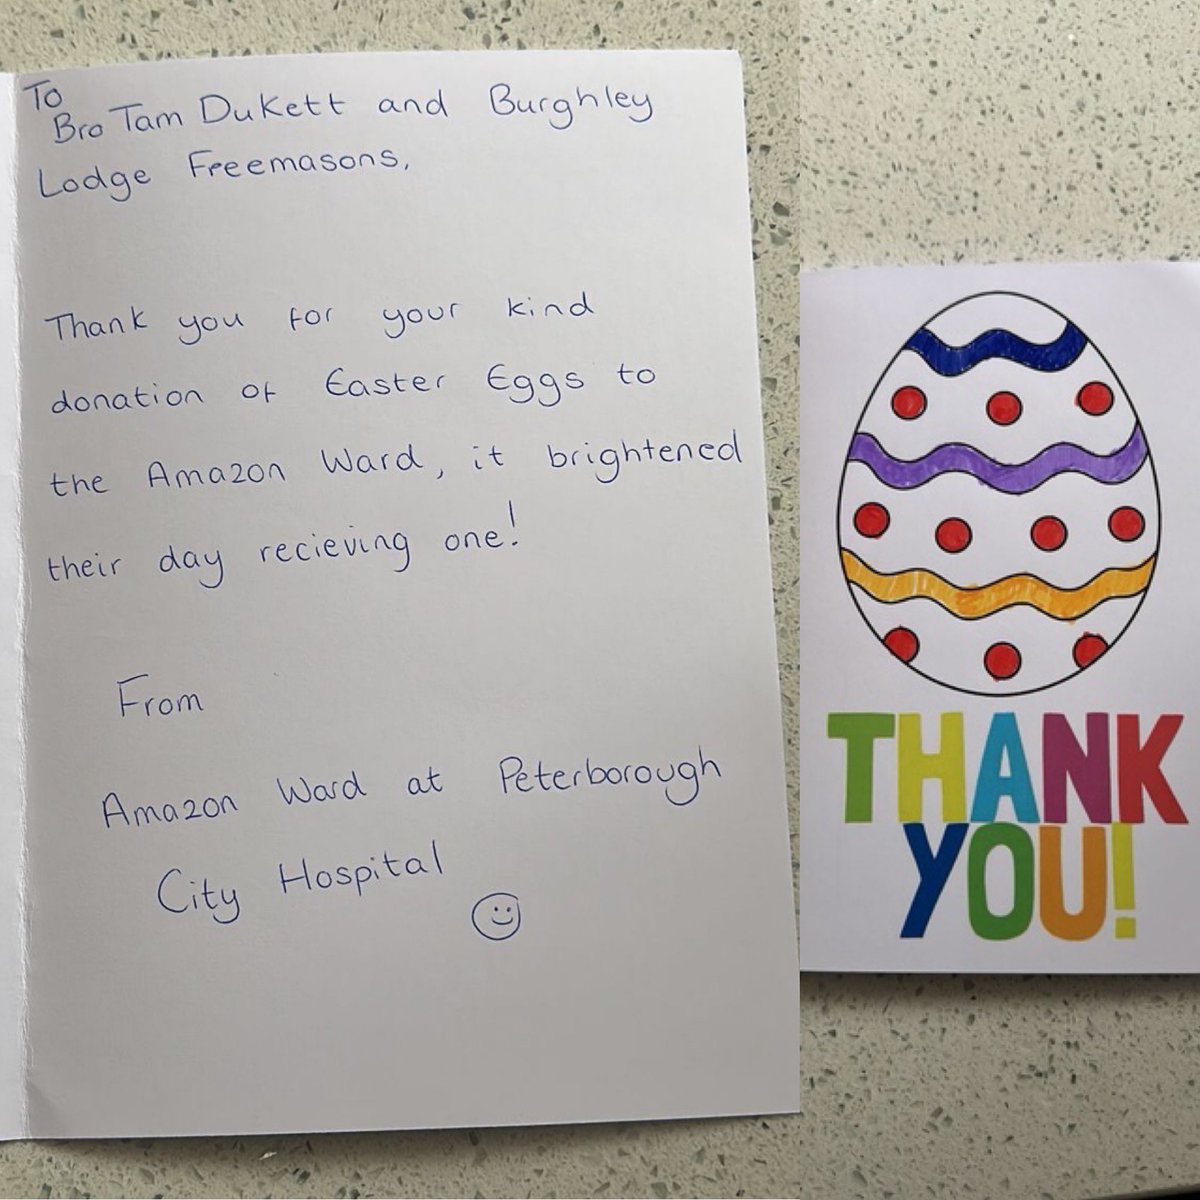 To
Bro Tam Dukett and Burghley
Lodge Freemasons,
Thank you for your kind
donation of Easter Eggs to
the Amazon Ward, it brightened
their day recieving one!
From
Amazon Ward at Peterborough
City Hospital
THANK
YOU!